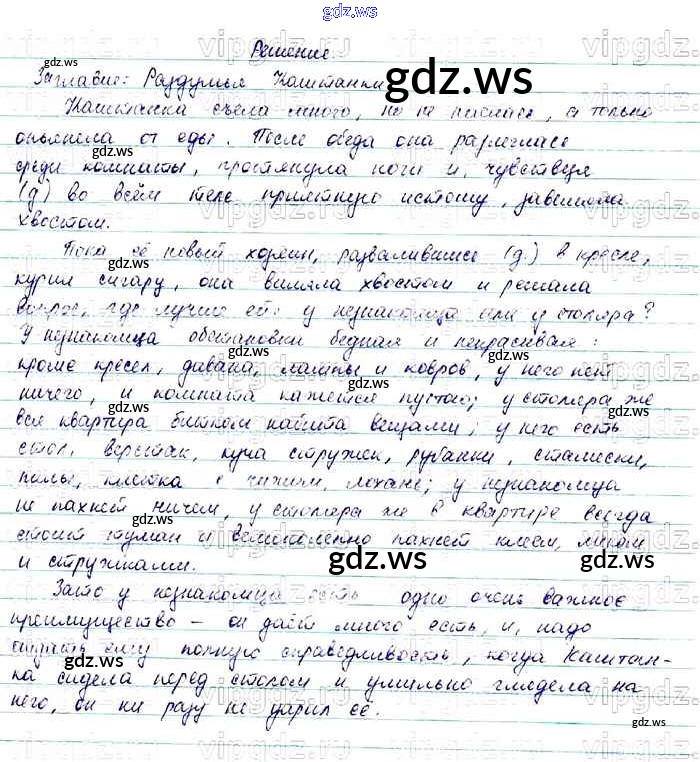 gdz.ws
Решение.
Заглавие: Раздумья Каштанки
Каштанка съела много, но не наелась, а только
опьянела от еды. После обеда она разлеглась
среди комнаты, протянула ноги и, чувствуя
(д) во всём теле приятную истому, завиляла
хвостом.
Пока её новый хозяин, развалившись (д.) в кресле,
курил сигару, она виляла хвостом и решала
вопрос, где лучше ей: у незнакомца или у столяра?
У незнакомца обстановка бедная и некрасивая:
кроме кресел, дивана, лампы и ковров, у него нет
ничего, и комната кажется пустою; у столяра же
вся квартира битком набита вещами; у него есть
стол, верстак, куча стружек, рубанки, стамески,
пилы, клетка с чижом, лохань; у незнакомца
не пахнет ничем, у столяра же в квартире всегда
стоит туман и великолепно пахнет клеем, лаком
и стружками.
Зато у незнакомца есть одно очень важное
преимущество – он даёт много есть, и, надо
отдать ему полную справедливость, когда Каштан-
ка сидела перед столом и умильно глядела на
него, он ни разу не ударил её.